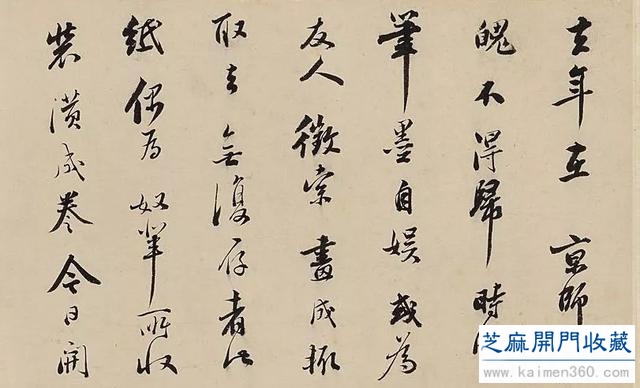 去年在 京師
愧不得歸時
筆墨自娱或為
友人徵索畫成輒
取去無復存者此
紙偶為奴輩所收
裝潢成卷今日開
芝麻開門收藏
www.kaimen360.com